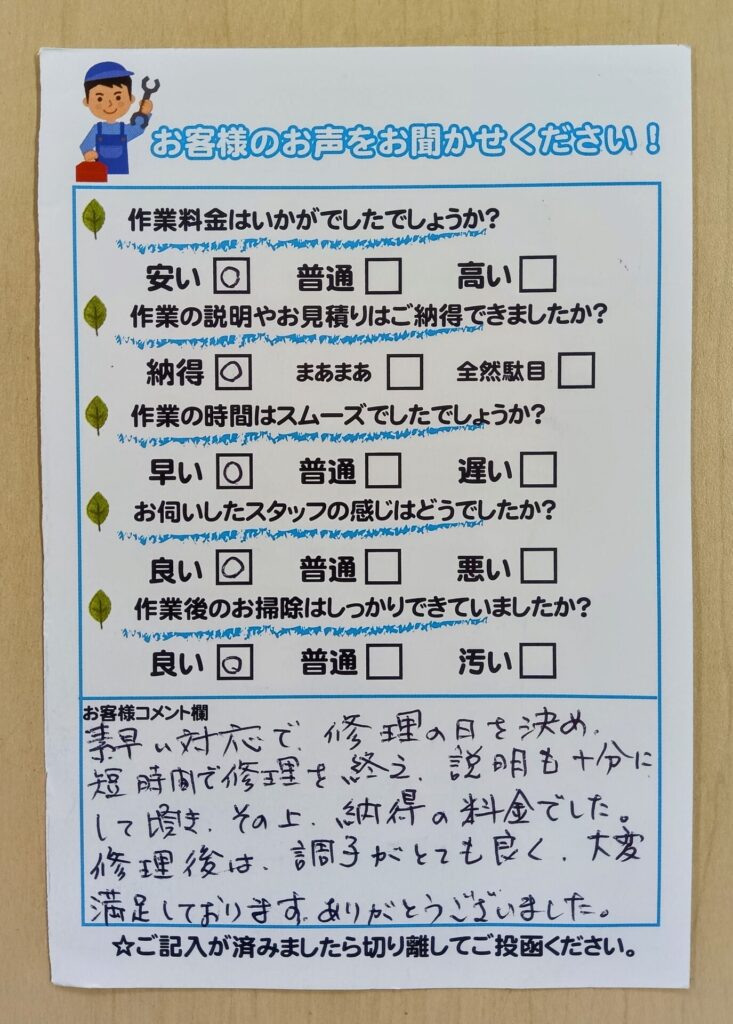 お客様のお声をお聞かせください！
作業料金はいかがでしたでしょうか？
安い ○ 普通 □ 高い □
作業の説明やお見積りはご納得できましたか？
納得 ○ まあまあ □ 全然駄目 □
作業の時間はスムーズでしたでしょうか？
早い ○ 普通 □ 遅い □
お伺いしたスタッフの感じはどうでしたか？
良い ○ 普通 □ 悪い □
作業後のお掃除はしっかりできていましたか？
良い ○ 普通 □ 汚い □
お客様コメント欄
素早い対応で、修理の日を決め、
短時間で修理を終え、説明も十分に
して頂き、その上、納得の料金でした。
修理後は、調子がとても良く、大変
満足しております。ありがとうございました。
☆ご記入が済みましたら切り離してご投函ください。